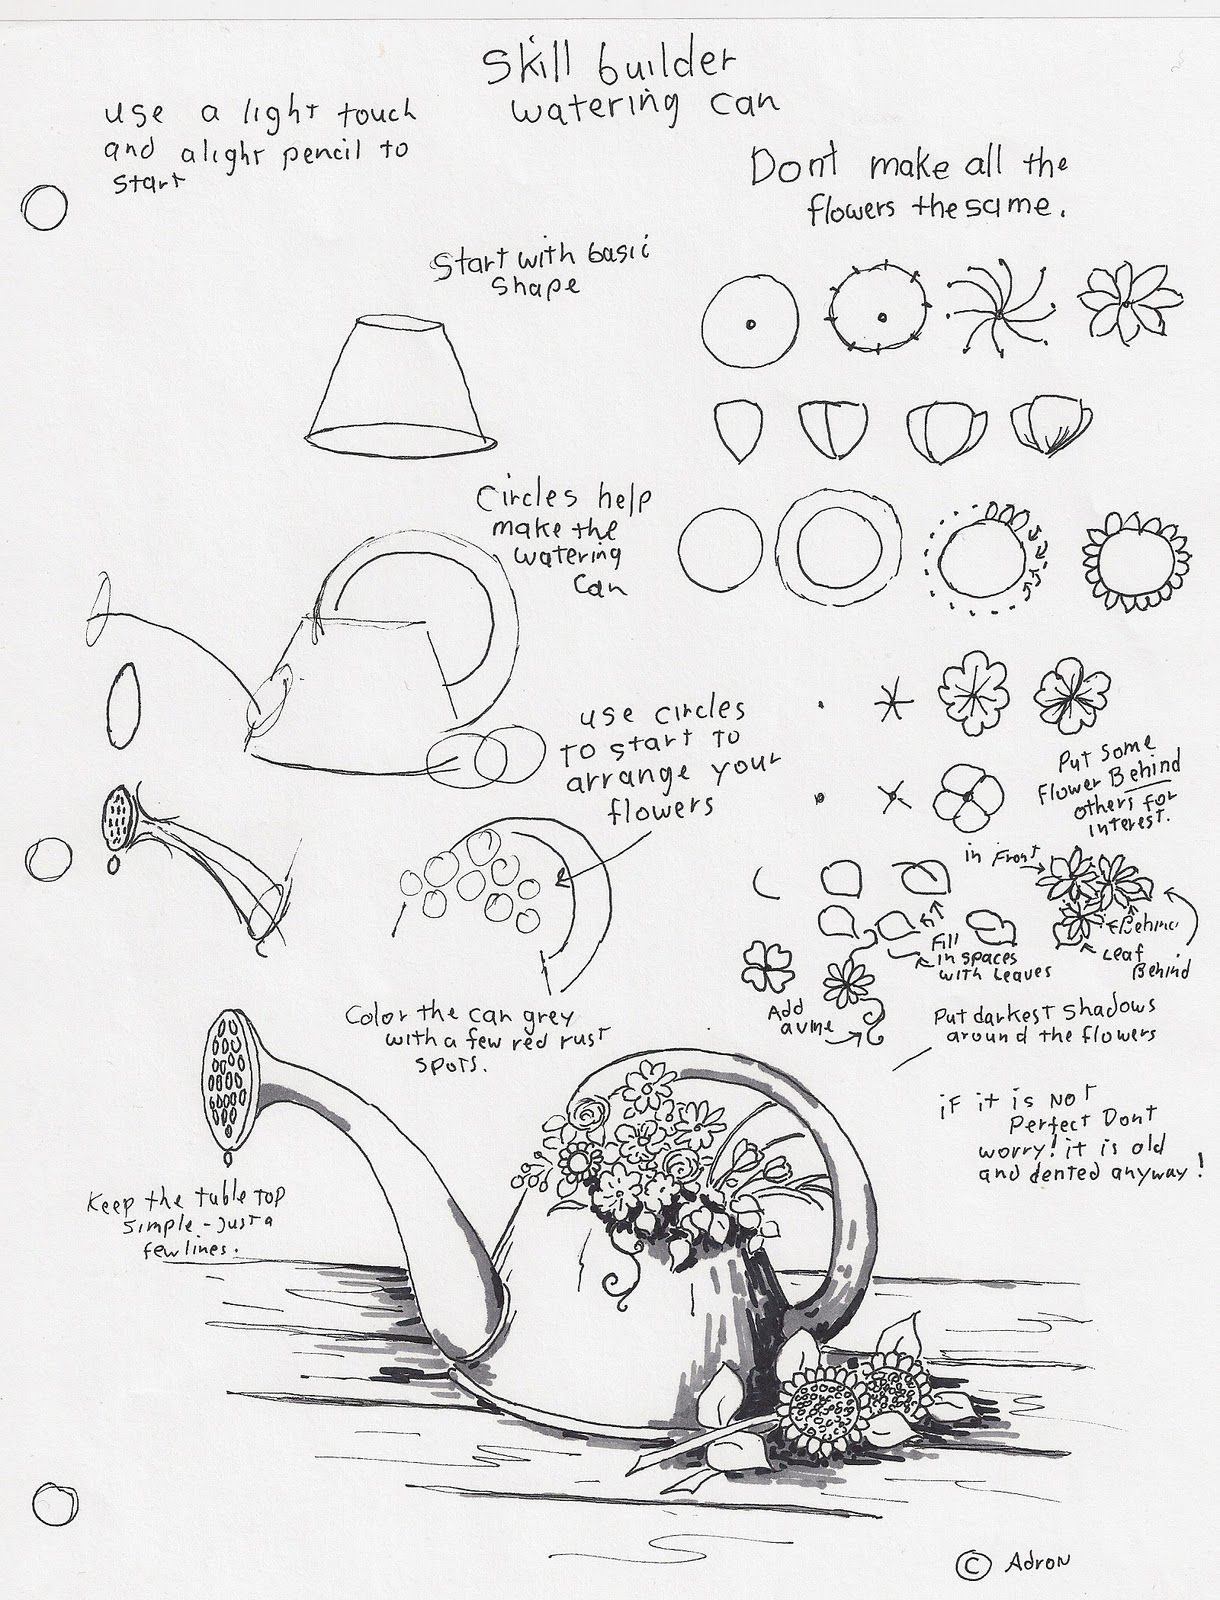 Skill builder
watering can
use a light touch
and a light pencil to
start
Dont make all the
flowers the same.
Start with basic
shape
Circles help
make the
watering
can
use circles
to start to
arrange your
flowers
Put some
flower Behind
others for
interest.
in Front
Behind
Leaf
Behind
Fill
in spaces
with Leaves
Add
a vine
Color the can grey
with a few red rust
spots.
Put darkest shadows
around the flowers
if it is Not
Perfect Dont
worry! it is old
and dented anyway!
Keep the table top
simple - Just a
few lines.
© Adron